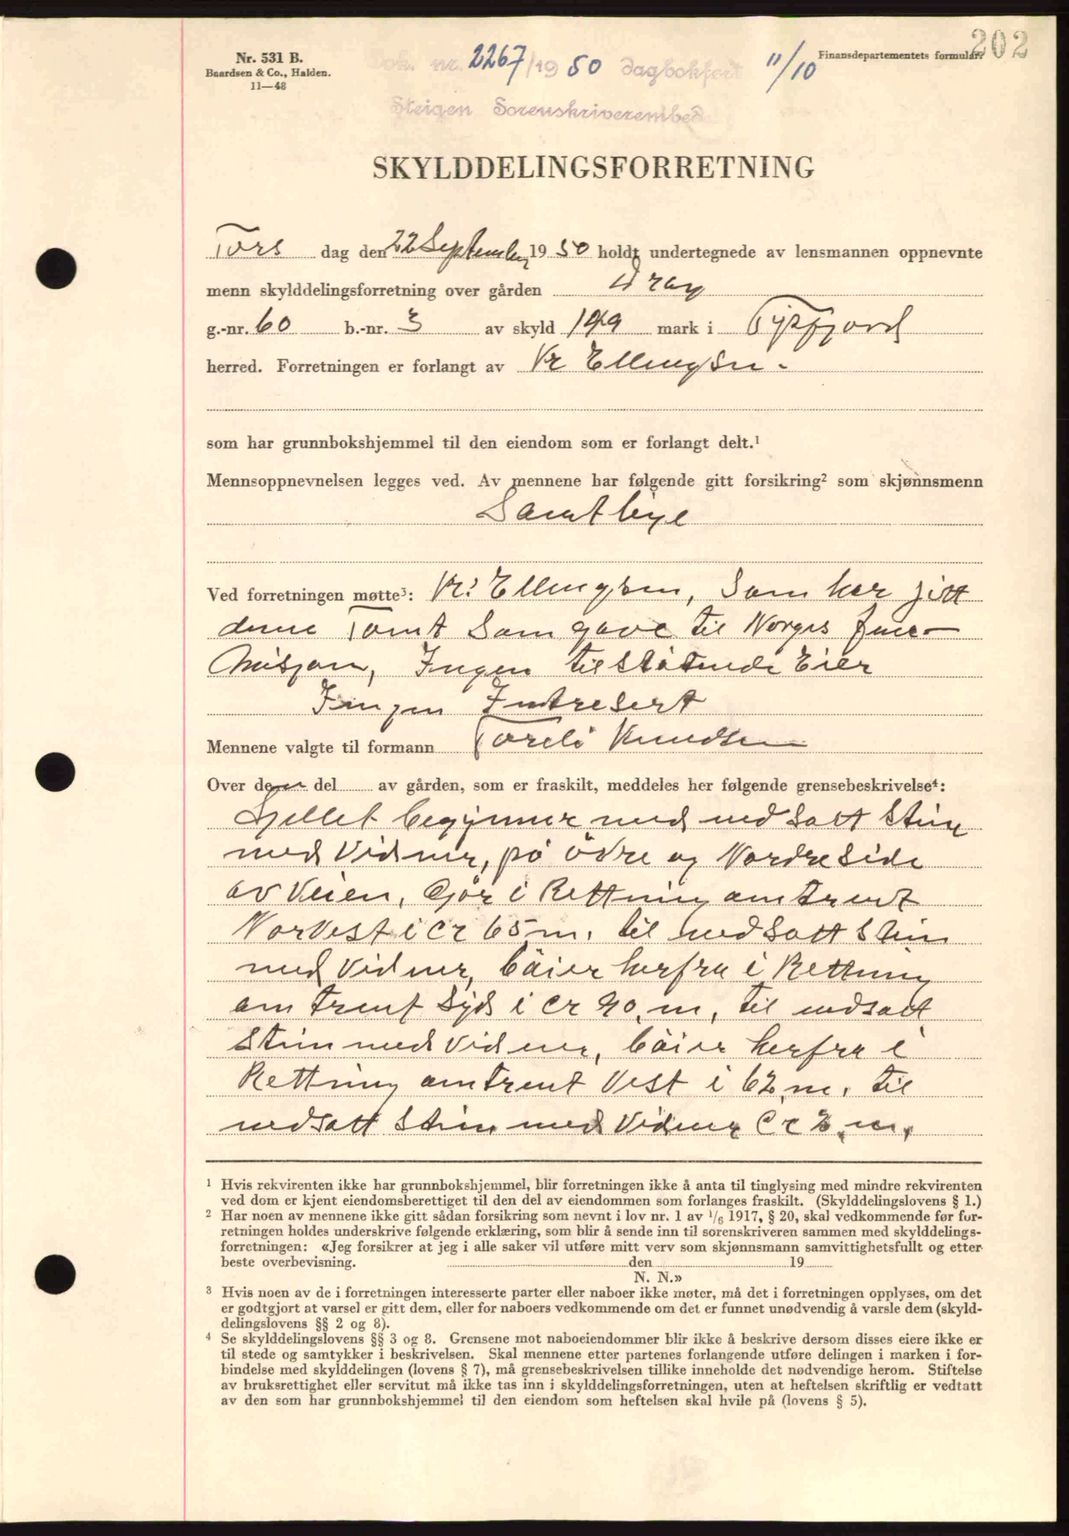 202
Nr. 531 B.
Baardsen & Co., Halden.
11—48
Dok. nr. 2267/1950 dagbokført 11/10
Finansdepartementets formular
Steigen Sorenskriverembed
SKYLDDELINGSFORRETNING
Tors dag den 22 September 1950 holdt undertegnede av lensmannen oppnevnte
menn skylddelingsforretning over gården Drag
g.-nr. 60 b.-nr. 3 av skyld mark i Tysfjord
herred. Forretningen er forlangt av Kr Ellingsen.
som har grunnbokshjemmel til den eiendom som er forlangt delt.¹
Mennsoppnevnelsen legges ved. Av mennene har følgende gitt forsikring² som skjønnsmenn
Samtlige
Ved forretningen møtte³: Kr: Ellingsen, Som har jitt
dene Tomt Som gave til Norges
Misjon, Ingen tilstøtende Eier
Ingen Intresert
Mennene valgte til formann Toralf Knudsen
Over den del av gården, som er fraskilt, meddeles her følgende grensebeskrivelse⁴:
Sjellet begynner med nedsatt Stein
med Vidner, på Övre og Nordre Side
av Veien, Gjör i Rettning amtrent
NorVest i cr 65 m. til nedsatt Stein
med Vidner, böier herfra i Rettning
amtrent Syd i cr 90, m, til nedsatt
Stein med Vidner, böier herfra i
Rettning amtrent Vest i 62, m. til
nedsatt Stein med Vidner Cr m,
¹ Hvis rekvirenten ikke har grunnbokshjemmel, blir forretningen ikke å anta til tinglysing med mindre rekvirenten
ved dom er kjent eiendomsberettiget til den del av eiendommen som forlanges fraskilt. (Skylddelingslovens § 1.)
² Har noen av mennene ikke gitt sådan forsikring som nevnt i lov nr. 1 av 1/6 1917, § 20, skal vedkommende før for-
retningen holdes underskrive følgende erklæring, som blir å sende inn til sorenskriveren sammen med skylddelings-
forretningen: «Jeg forsikrer at jeg i alle saker vil utføre mitt verv som skjønnsmann samvittighetsfullt og etter
beste overbevisning. den 19
N. N.»
³ Hvis noen av de i forretningen interesserte parter eller naboer ikke møter, må det i forretningen opplyses, om det
er godtgjort at varsel er gitt dem, eller for naboers vedkommende om det er funnet unødvendig å varsle dem (skyld-
delingslovens §§ 2 og 8).
⁴ Se skylddelingslovens §§ 3 og 8. Grensene mot naboeiendommer blir ikke å beskrive dersom disses eiere ikke er
til stede og samtykker i beskrivelsen. Skal mennene etter partenes forlangende utføre delingen i marken i for-
bindelse med skylddelingen (lovens § 7), må grensebeskrivelsen tillike inneholde det nødvendige herom. Stiftelse
av bruksrettighet eller servitut må ikke tas inn i skylddelingsforretningen, uten at heftelsen skriftlig er vedtatt
av den som har grunnbokshjemmel til den eiendom som heftelsen skal hvile på (lovens § 5).